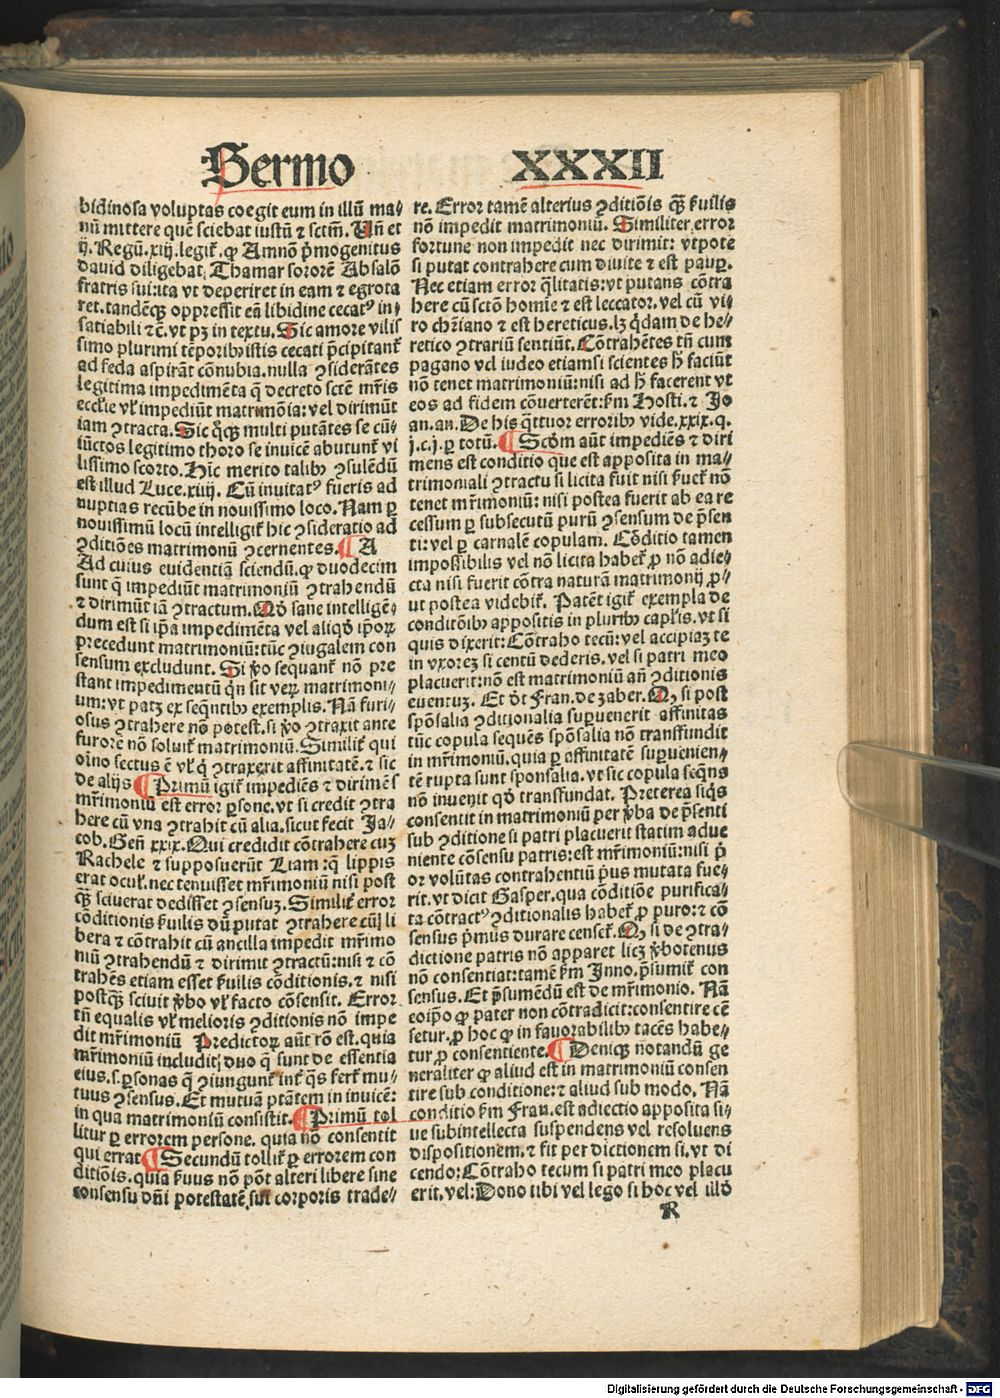 Sermo XXXII
bidinosa voluptas coegit eum in illũ ma⸗
nũ mittere quẽ sciebat iustũ ⁊ sctm̃. Uñ et
ij. Regũ. xiij. legit᷑. ꝙ Amnõ p̃mogenitus
dauid diligebat Thamar sororẽ Absalõ
fratris sui: ita vt deperiret in eam ⁊ egrota
ret. tandẽqꝫ oppressit eñ libidine cecatꝰ in⸗
satiabili ⁊c̃. vt pꝫ in textu. Sic amore vilis
simo plurimi tẽporibꝫ istis cecati p̃cipitant᷑
ad feda aspirãt cõnubia. nulla ꝯsiderãtes
legitima impedimẽta q̃ decreto sctẽ mr̃is
eccl̃ie vl᷑ impediũt matrimõia: vel dirimũt
iam ꝯtracta. Sic qñqꝫ multi putãtes se cũ⸗
iũctos legitimo thoro se inuicẽ abutunt᷑ vi
lissimo scorto. Hĩc merito talibꝫ ꝯsulẽdũ
est illud Luce. xiiij. Cũ inuitatꝰ fueris ad
nuptias recũbe in nouissimo loco. Nam ꝑ
nouissimũ locũ intelligit᷑ hic ꝯsideratio ad
ꝯditiões matrimonij ꝯcernentes. ¶ A
Ad cuius euidentiã sciendũ. ꝙ duodecim
sunt q̃ impediũt matrimoniũ ꝯtrahendũ
⁊ dirimũt iã ꝯtractum. Qđ sane intelligẽ⸗
dum est si ip̃a impedimẽta vel aliqđ ip̃oꝝ
precedunt matrimoniũ: tũc ꝯiugalem con
sensum excludunt. Si ṽo sequant᷑ nõ pre
stant impedimentũ q̃n sit veꝝ matrimoni⸗
um: vt patꝫ ex seq̃ntibꝫ exemplis. Nã furi⸗
osus ꝯtrahere nõ potest. si ṽo ꝯtraxit ante
furorẽ nõ soluit᷑ matrimoniũ. Similit᷑ qui
oĩno sectus ẽ vl᷑ q̃ ꝯtraxerit affinitatẽ. ⁊ sic
de alijs ¶ Primũ igit᷑ impediẽs ⁊ dirimẽs
mr̃imoniũ est error ꝑsone. vt si credit ꝯtra
here cũ vna ꝯtrahit cũ alia. sicut fecit Ja⸗
cob. Geñ xxix. Qui credidit cõtrahere cuꝫ
Rachele ⁊ supposuerũt Liam: q̃ lippis
erat ocul᷑. nec tenuisset mr̃imoniũ nisi post
qꝫ̃ sciuerat dedisset ꝯsensuꝫ. Similit᷑ error
cõditionis ẜuilis dũ putat ꝯtrahere cũ li
bera ⁊ cõtrahit cũ ancilla impedit mr̃imo
niũ ꝯtrahendũ ⁊ dirimit ꝯtractũ: nisi ⁊ cõ
trahẽs etiam esset ẜuilis cõditionis. ⁊ nisi
postqꝫ̃ sciuit ṽbo vl᷑ facto cõsensit. Error
tñ equalis vl᷑ melioris ꝯditionis nõ impe
dit mr̃imoniũ Predictoꝝ aũt rõ est. quia
mr̃imoniũ includit duo q̃ sunt de essentia
eius. s. ꝑsonas q̃ ꝯiungunt᷑ int᷑ q̃s fert᷑ mu⸗
tuus ꝯsensus. Et mutuã ptãtem in inuicẽ:
in qua matrimoniũ consistit. ¶ Primũ tol
litur ꝑ errorem persone. quia nõ consentit
qui errat ¶ Secundũ tollit᷑ ꝑ errorem con
ditiõis. quia ẜuus nõ põt alteri libere sine
consensu dñi potestatẽ sui corporis trade⸗
re. Error tamẽ alterius ꝯditiõis qꝫ̃ ẜuilis
nõ impedit matrimoniũ. Similiter error
fortune non impedit nec dirimit: vtpote
si putat contrahere cum diuite ⁊ est pauꝑ.
Nec etiam error q̃litatis: vt putans cõtra
here cũ sctõ homĩe ⁊ est leccator. vel cũ vi⸗
ro chr̃iano ⁊ est hereticus. lꝫ q̃dam de he⸗
retico ꝯtrariũ sentiũt. Cõtrahẽtes tñ cum
pagano vel iudeo etiamsi scientes h̃ faciũt
nõ tenet matrimoniũ: nisi ad h̃ facerent vt
eos ad fidem cõuerterẽt: ẜm Hosti. ⁊ Jo
an. an. De his q̃ttuor erroribꝫ vide. xxix. q.
j. c. j. ꝑ totũ. ¶ Scđm aũt impediẽs ⁊ diri
mens est conditio que est apposita in ma⸗
trimoniali ꝯtractu si licita fuit nisi ẜuet᷑ nõ
tenet mr̃imoniũ: nisi postea fuerit ab ea re
cessum ꝑ subsecutũ purũ ꝯsensum de p̃sen
ti: vel ꝑ carnalẽ copulam. Cõditio tamen
impossibilis vel nõ licita habet᷑ ꝓ nõ adie⸗
cta nisi fuerit cõtra naturã matrimonij ꝓ⸗
ut postea videbit᷑. Patẽt igit᷑ exempla de
conditõibꝫ appositis in pluribꝫ capl̃is. vt si
quis dixerit: Cõtraho tecũ: vel accipiaꝫ te
in vxoreꝫ si centũ dederis. vel si patri meo
placuerit: nõ est matrimoniũ añ ꝯditionis
euentuꝫ. Et đt Fran. de zaber. Qꝫ si post
spõsalia ꝯditionalia suꝑuenerit affinitas
tũc copula sequẽs spõsalia nõ transfundit
in mr̃imoniũ. quia ꝑ affinitatẽ suꝑuenien⸗
tẽ rupta sunt sponsalia. vt sic copula seq̃ns
nõ inuenit qđ transfundat. Preterea siq̃s
consentit in matrimoniũ per ṽba de p̃senti
sub ꝯditione si patri placuerit statim adue
niente cõsensu patris: est mr̃imoniũ: nisi p̃
or volũtas contrahentiũ p̃us mutata fue⸗
rit. vt dicit Gasper. qua cõditiõe purifica⸗
ta cõtractꝰ ꝯditionalis habet᷑ ꝓ puro: ⁊ cõ
sensus p̃mus durare censet᷑. Qꝫ si de ꝯtra⸗
dictione patris nõ apparet licꝫ ṽbotenus
nõ consentiat: tamẽ ẜm Inno. p̃sumit᷑ con
sensus. Et p̃sumẽdũ est de mr̃imonio. Nã
eoip̃o ꝙ pater non cõtradicit: consentire cẽ
setur. ꝓ hoc ꝙ in fauorabilibꝫ tacẽs habe⸗
tur ꝓ consentiente. ¶ Deniqꝫ notandũ ge
neraliter ꝙ aliud est in matrimoniũ consen
tire sub conditione: ⁊ aliud sub modo. Nã
conditio ẜm Fran. est adiectio apposita si⸗
ue subintellecta suspendens vel resoluens
dispositionem. ⁊ fit per dictionem si. vt di
cendo: Cõtraho tecum si patri meo placu
erit. vel: Dono tibi vel lego si hoc vel illđ
R
Digitalisierung gefördert durch die Deutsche Forschungsgemeinschaft - DFG